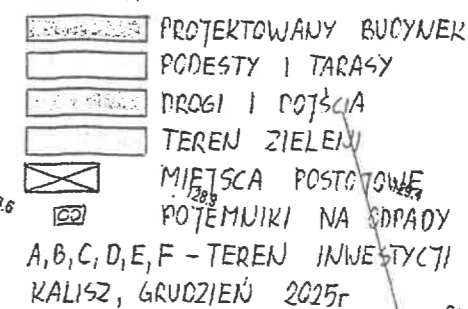 PROJEKTOWANY BUDYNEK
PODESTY I TARASY
DROGI I DOJŚCIA
TEREN ZIELENI
MIEJSCA POSTOJOWE
128.9
POJEMNIKI NA ODPADY
A, B, C, D, E, F - TEREN INWESTYCJI
KALISZ, GRUDZIEŃ 2025r